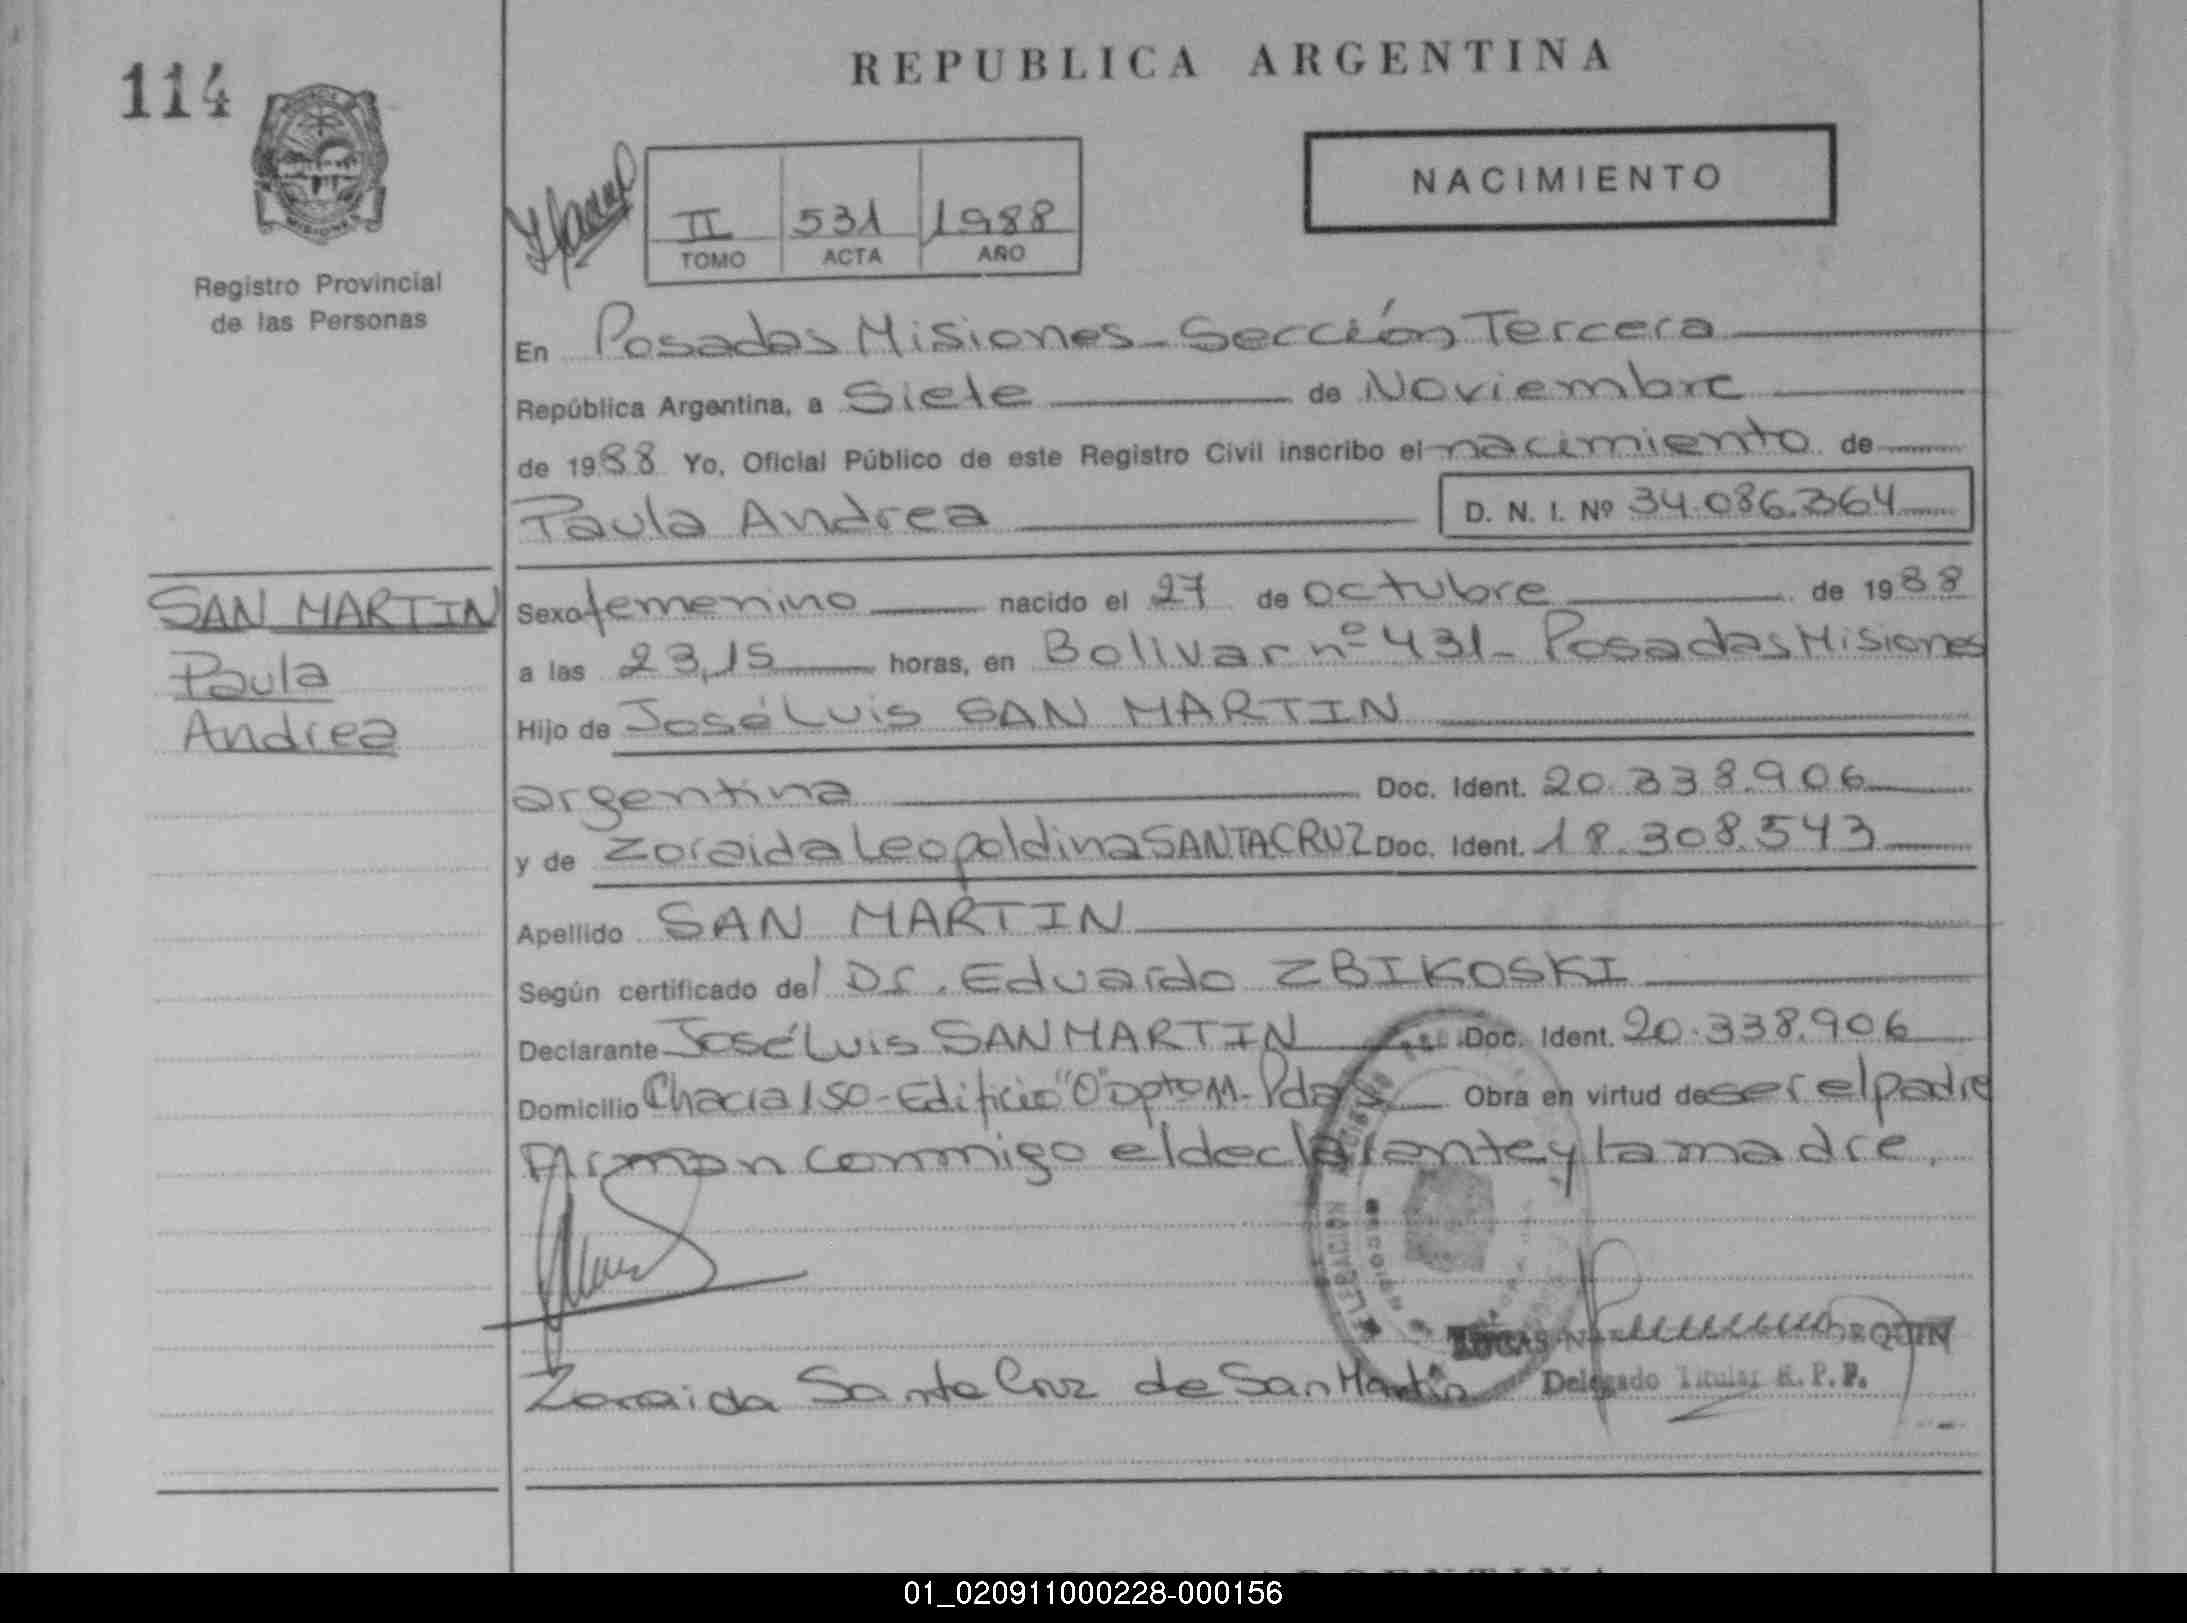 114
REPUBLICA ARGENTINA
NACIMIENTO
II 531 1988
TOMO ACTA AÑO
Registro Provincial
de las Personas
En Posadas Misiones - Sección Tercera
República Argentina, a Siete de Noviembre
de 1988 Yo, Oficial Público de este Registro Civil inscribo el nacimiento de
Paula Andrea D. N. I. Nº 34.086.364
SAN MARTIN
Paula
Andrea
Sexo femenino nacido el 27 de octubre de 1988
a las 23,15 horas, en Bolivar nº 431 - Posadas Misiones
Hijo de José Luis SAN MARTIN
argentina Doc. Ident. 20.338.906
y de Zoraida Leopoldina SANTACRUZ Doc. Ident. 18.308.543
Apellido SAN MARTIN
Según certificado del Dr. Eduardo ZBIKOSKI
Declarante José Luis SAN MARTIN Doc. Ident. 20.338.906
Domicilio Chacra 150 - Edificio "O" Dpto 11 - Pdas Obra en virtud de ser el padre
Firman conmigo el declarante y la madre.
Zoraida Santa Cruz de San Martin
Delegado Titular R. P. P.
01_020911000228-000156